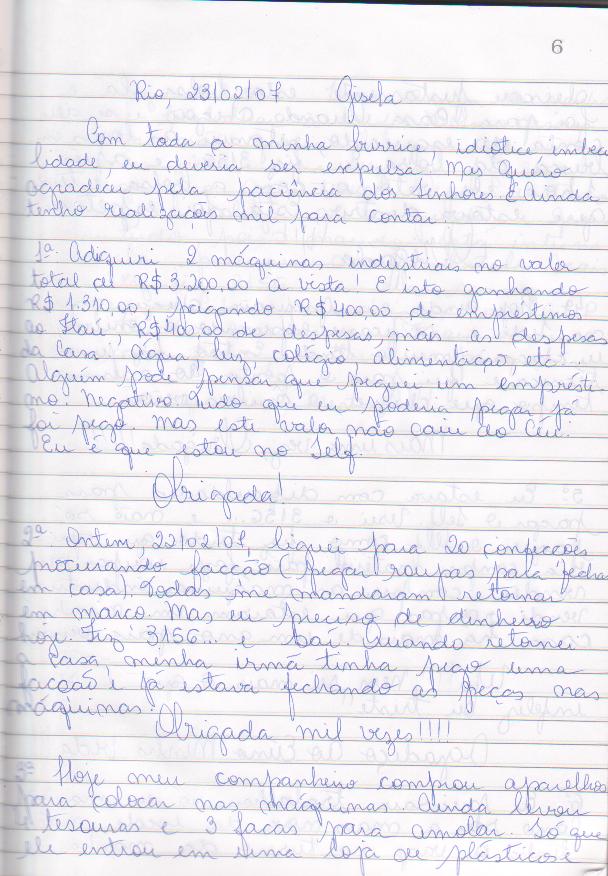 6
Rio, 23/02/07 Gisela
Com toda a minha burrice, idiotice imbeci
lidade, eu deveria ser expulsa. Mas quero
agradecer pela paciência dos Senhores. E Ainda
tenho realizações mil para contar.
1ª. Adiquiri 2 máquinas industriais no valor
total de R$ 3.200,00 à vista! E isto ganhando
R$ 1.310,00, pagando R$ 400,00 de empréstimos
ao Itaú, R$ 400,00 de despesas, mais as despesas
da casa: água luz, colégio, alimentação, etc...
Alguém pode pensar que peguei um emprésti-
mo. Negativo. Tudo que eu poderia pegar já
foi pego. Mas este valor não caiu do Céu.
Eu é que estou no Self.
Obrigada!
2ª Ontem, 22/02/07, liguei para 20 confecções
procurando facção (pegar roupas para fechar
em casa). Todas me mandaram retornar
em março. Mas eu preciso de dinheiro
hoje. Fiz 3156... e saí. Quando retornei
a casa, minha irmã tinha pego uma
facção e já estava fechando as peças nas
máquinas.
Obrigada mil vezes!!!!
3ª Hoje meu companheiro comprou aparelhos
para colocar nas máquinas. Ainda levou
tesouras e 3 facas para amolar. Só que
ele entrou em uma loja de plásticos e